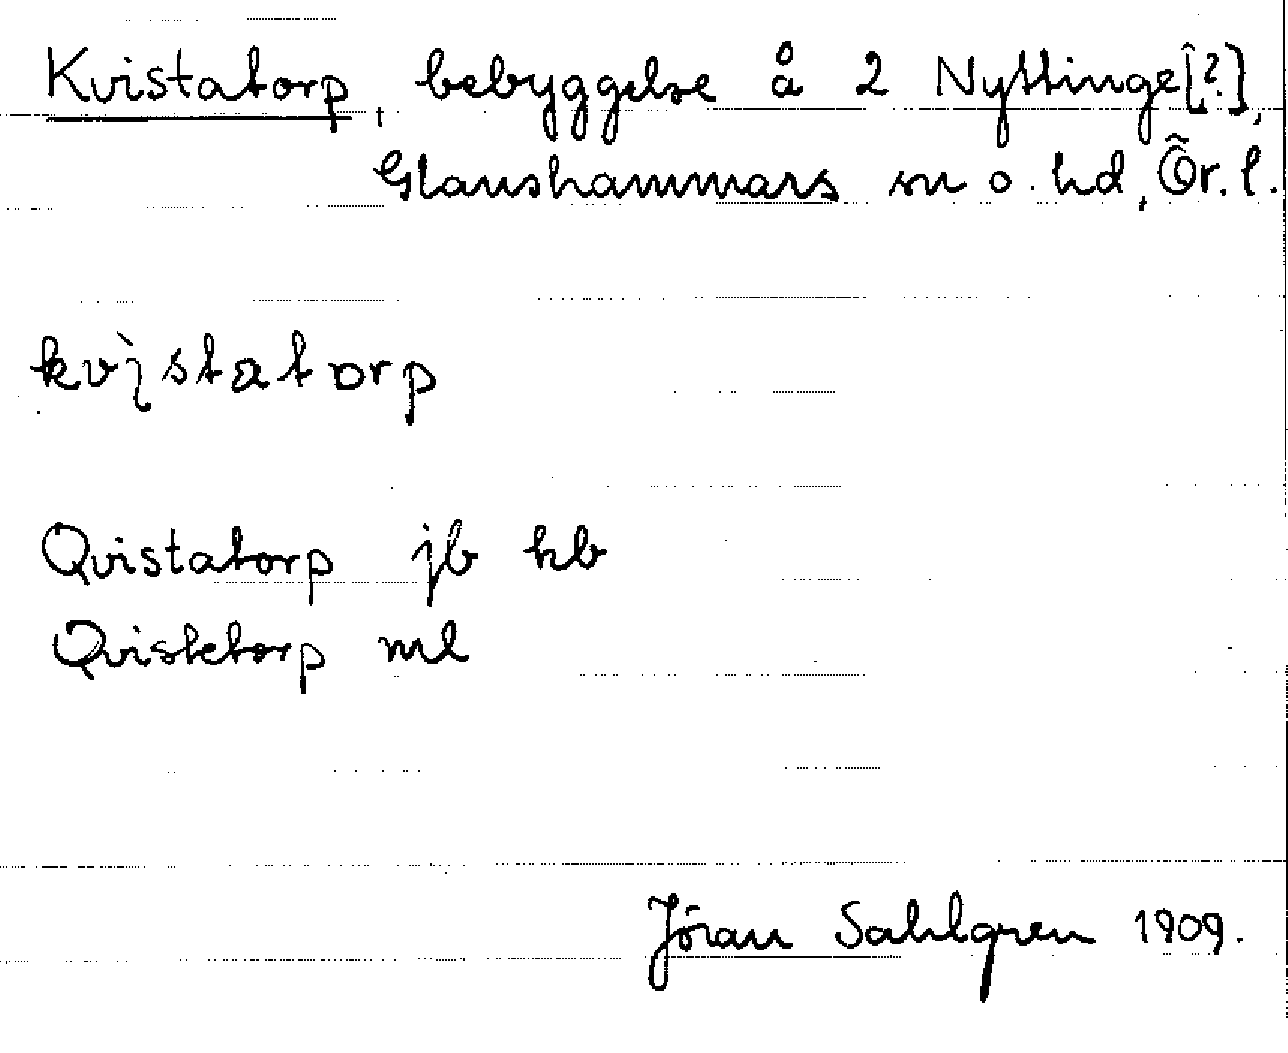 Kvistatorp, bebyggelse å 2 Nyttinge[?],
Glanshammars sn o. hd, Ör. l.
kvìstatorp
Qvistatorp jb kb
Qvistetorp ml
Jöran Sahlgren 1909.